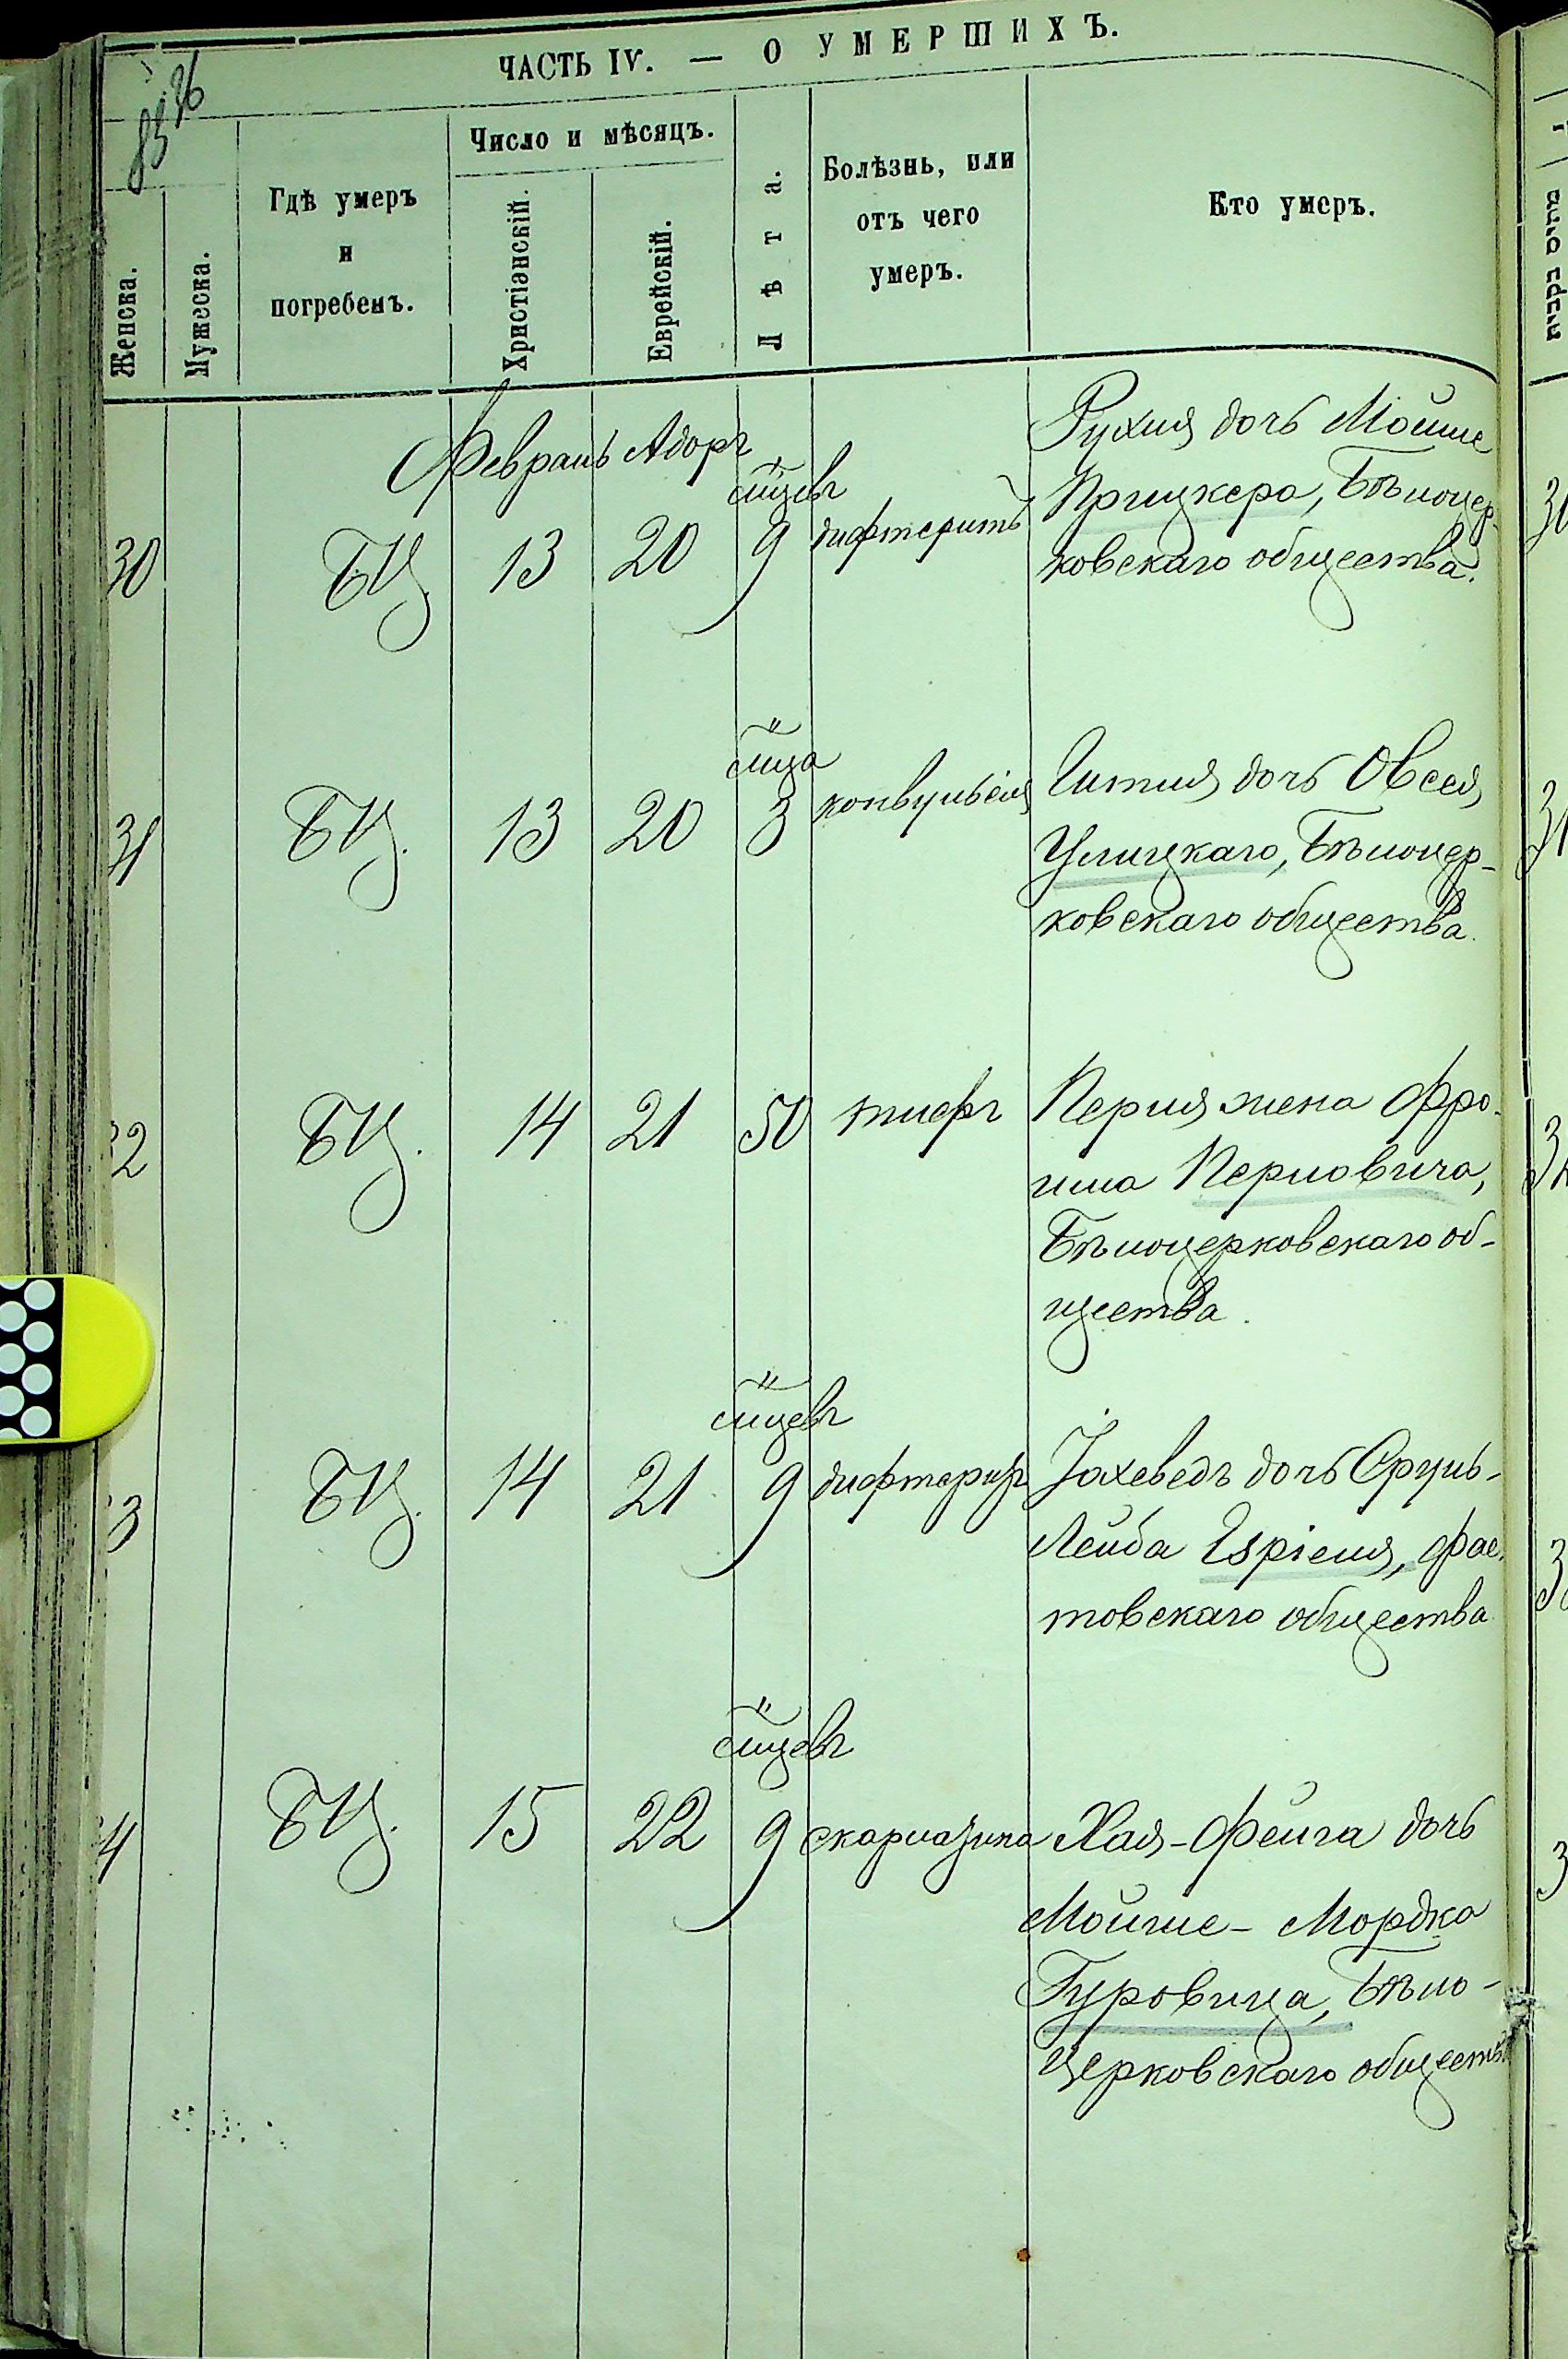 ЧАСТЬ IV. — О УМЕРШИХЪ.
Женска.
Мужеска.
Гдѣ умеръ
и
погребенъ.
Число и мѣсяцъ.
Христіанскій.
Еврейскій.
Лѣта.
Болѣзнь, или
отъ чего
умеръ.
Кто умеръ.
Февраль Адаръ
30 БЦ. 13 20 м̃цевъ 9 дифтеритъ
Рухля дочь Мойше
Прицкера, Бѣлоцер-
ковскаго общества.
31 БЦ. 13 20 м̃ца 3 конвульсія
Гитля дочь Овсея
Улицкаго, Бѣлоцер-
ковскаго общества.
32 БЦ. 14 21 50 тифъ
Перля жена Фро-
има Перловича,
Бѣлоцерковскаго об-
щества.
3 БЦ. 14 21 м̃цевъ 9 дифтеритъ
Іохеведъ дочь Сруль-
Лейба, Фас-
товскаго общества
4 БЦ. 15 22 м̃цевъ 9 скарлатина
Хая-Фейга дочь
Мойше-Мордка
Гуровица, Бѣло-
церковскаго обществ
30
31
3
3
3